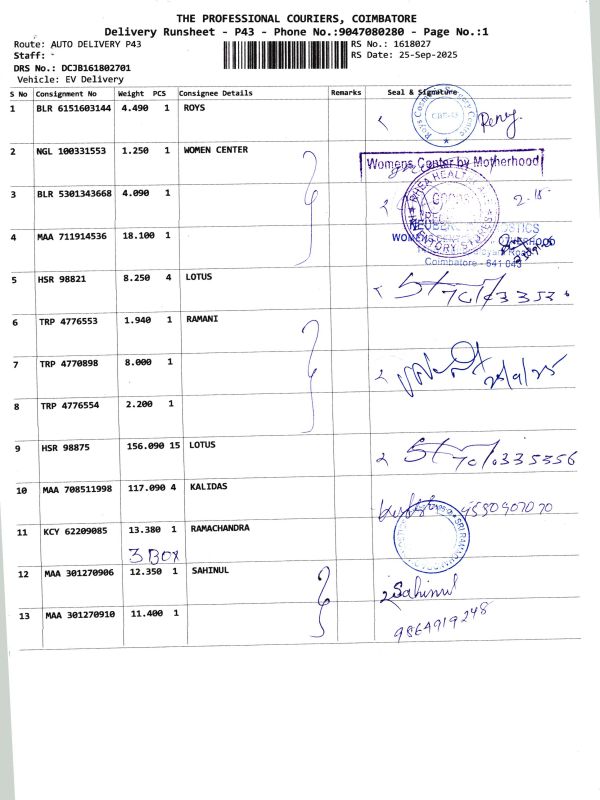 THE PROFESSIONAL COURIERS, COIMBATORE
Delivery Runsheet - P43 - Phone No.:9047080280 - Page No.:1
Route: AUTO DELIVERY P43 RS No.: 1618027
Staff: - RS Date: 25-Sep-2025
DRS No.: DCJB161802701
Vehicle: EV Delivery
S No Consignment No Weight PCS Consignee Details Remarks Seal & Signature
1 BLR 6151603144 4.490 1 ROYS
2 NGL 100331553 1.250 1 WOMEN CENTER
Womens Center by Motherhood
3 BLR 5301343668 4.090 1
4 MAA 711914536 18.100 1
Coimbatore - 641 043
5 HSR 98821 8.250 4 LOTUS
6 TRP 4776553 1.940 1 RAMANI
7 TRP 4770898 8.000 1 25/9/25
8 TRP 4776554 2.200 1
9 HSR 98875 156.090 15 LOTUS
10 MAA 708511998 117.090 4 KALIDAS
11 KCY 62209085 13.380 1 RAMACHANDRA
3 BOX
12 MAA 301270906 12.350 1 SAHINUL Sahinul
13 MAA 301270910 11.400 1 9864919248